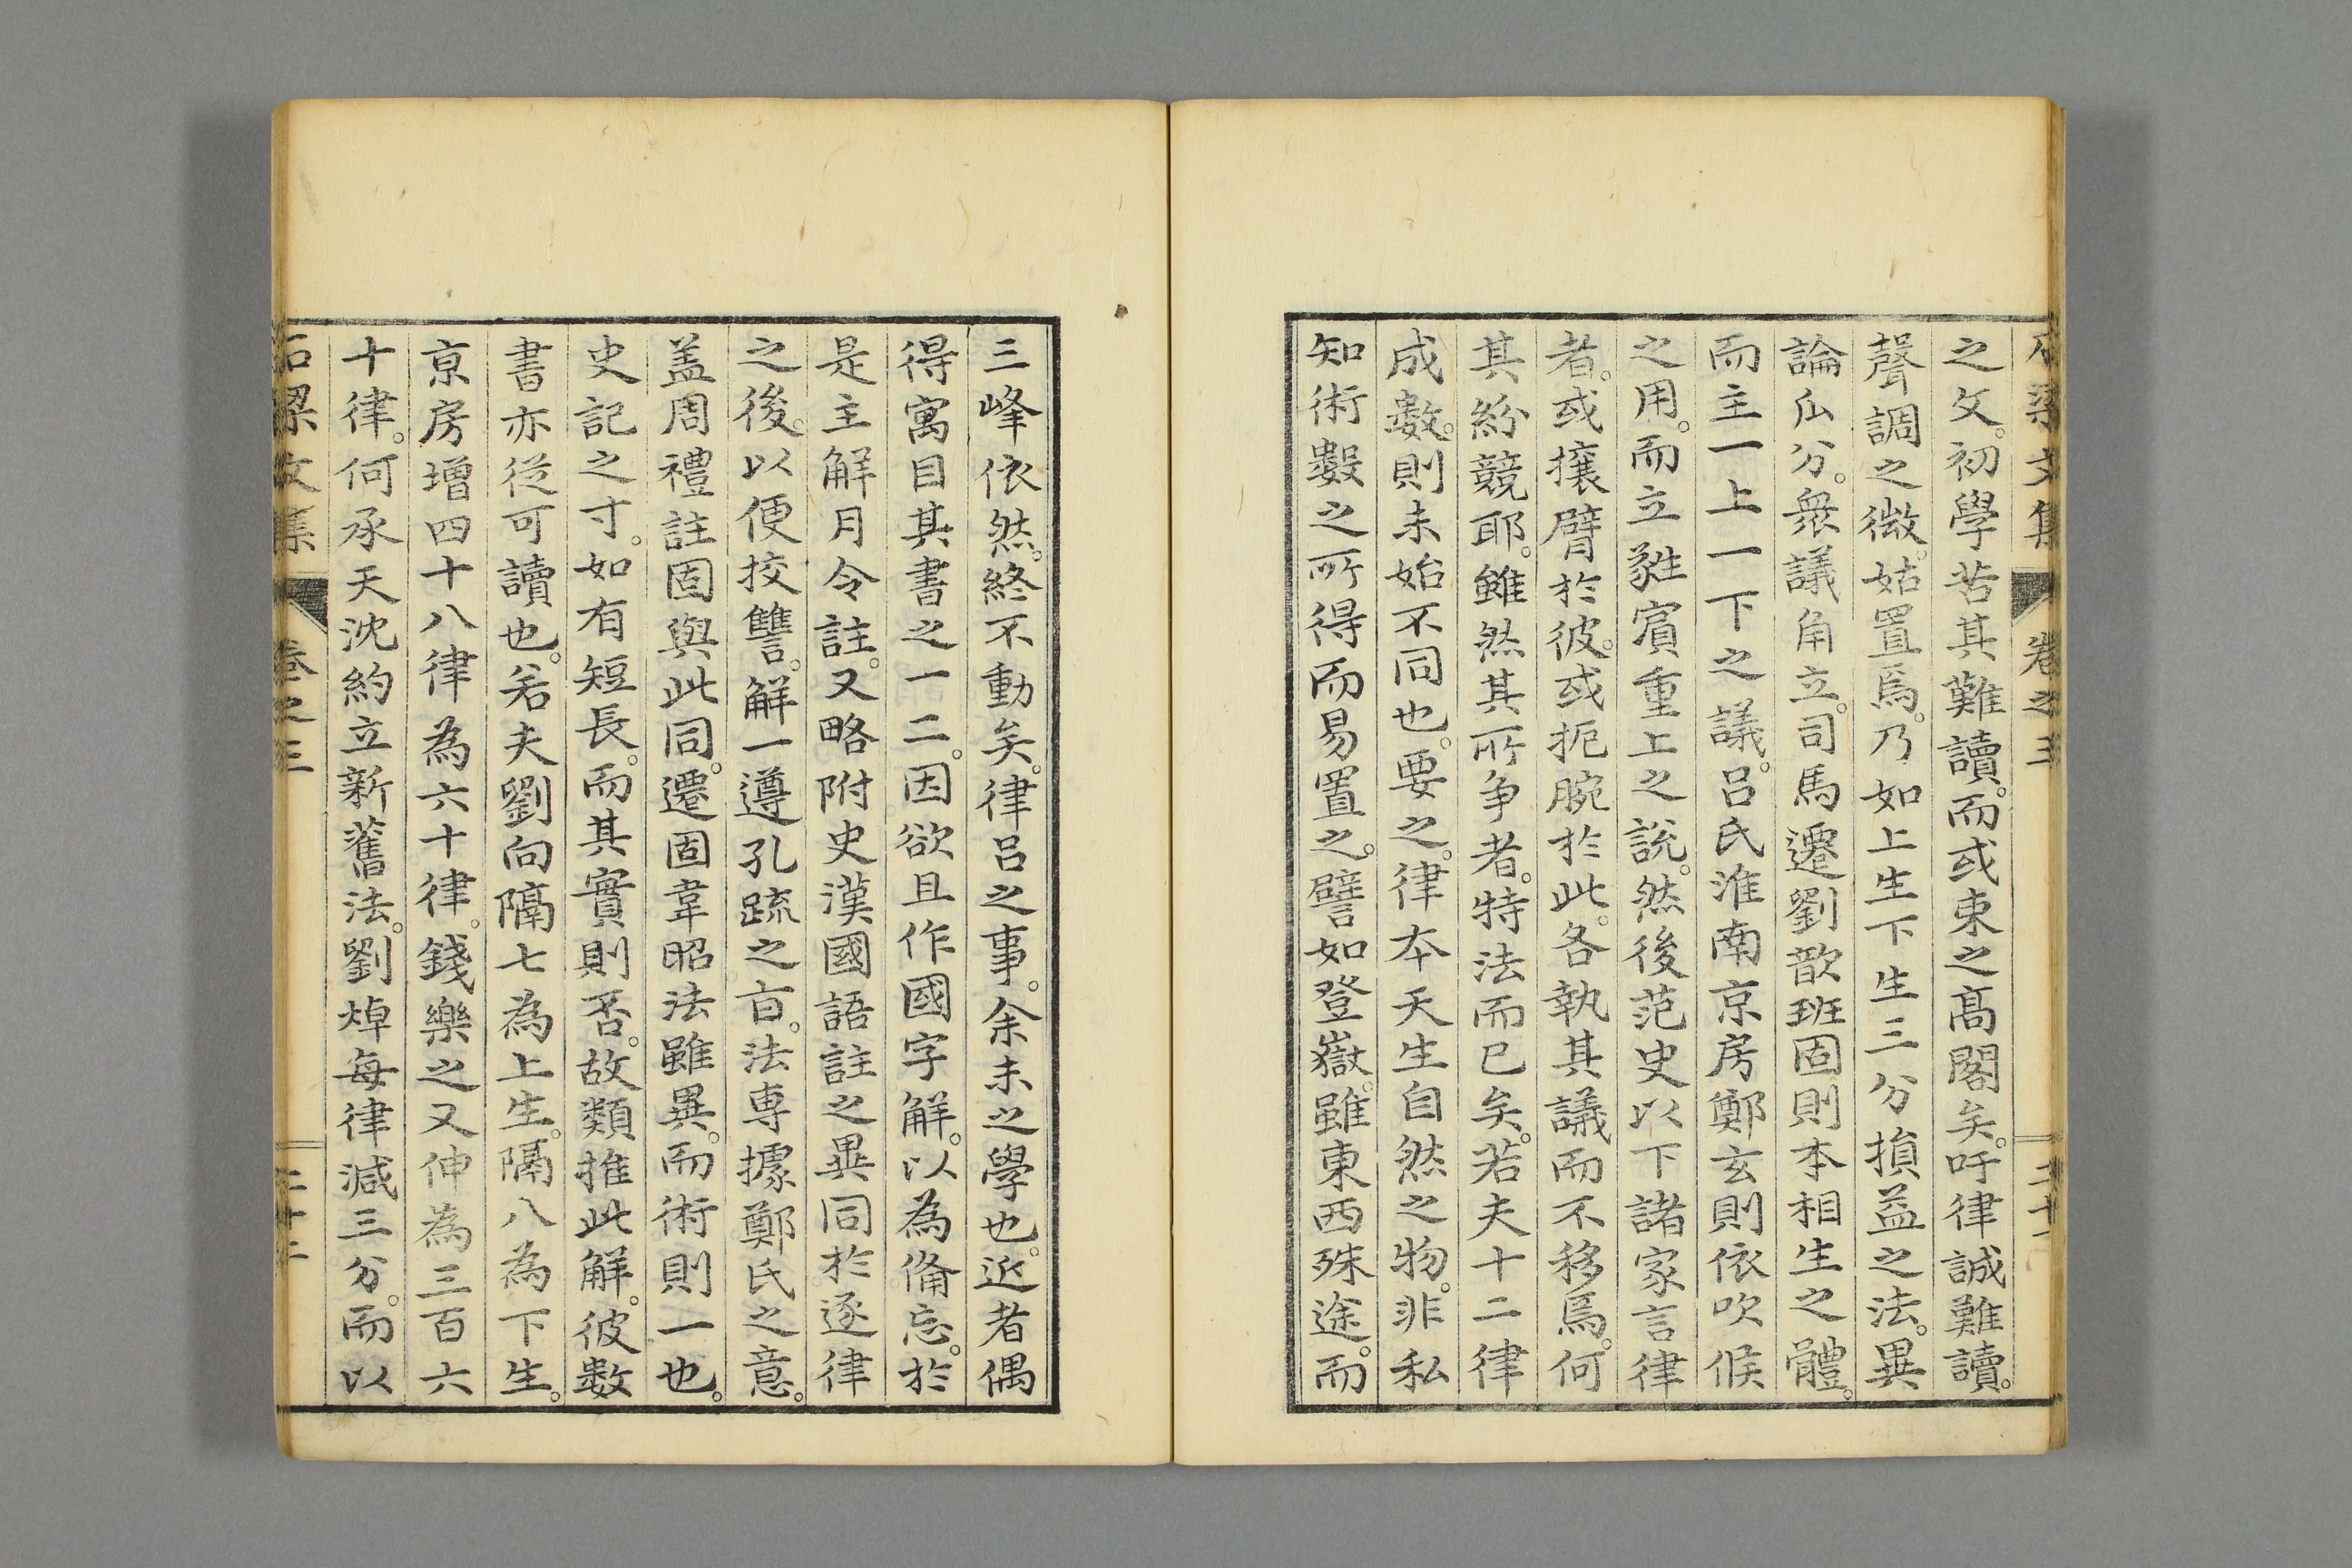 石梁文集 卷之三 二十一
之文。初學苦其難讀。而或束之高閣矣。吁律誠難讀。
聲調之微。姑置焉。乃如上生下生三分損益之法。異
論瓜分。衆議角立。司馬遷劉歆班固則本相生之體。
而主一上一下之議。呂氏淮南京房鄭玄則依吹候
之用。而立蕤賓重上之說。然後范史以下諸家言律
者。或攘臂於彼。或扼腕於此。各執其議而不移焉。何
其紛競耶。雖然其所争者。特法而已矣。若夫十二律
成數。則未始不同也。要之。律本天生自然之物。非私
知術數之所得而易置之。譬如登嶽。雖東西殊途。而
三峰依然。終不動矣。律呂之事。余未之學也。近者偶
得寓目其書之一二。因欲且作國字解。以為備忘。於
是主解月令註。又略附史漢國語註之異同於逐律
之後。以便挍讐。解一遵孔疏之㫖。法専據鄭氏之意。
盖周禮註固與此同。遷固韋昭法雖異。而術則一也。
史記之寸。如有短長。而其實則否。故類推此解。彼數
書亦從可讀也。若夫劉向隔七為上生。隔八為下生。
京房增四十八律為六十律。錢樂之又伸為三百六
十律。何承天沈約立新舊法。劉焯每律減三分。而以
石梁文集 卷之三 二十二